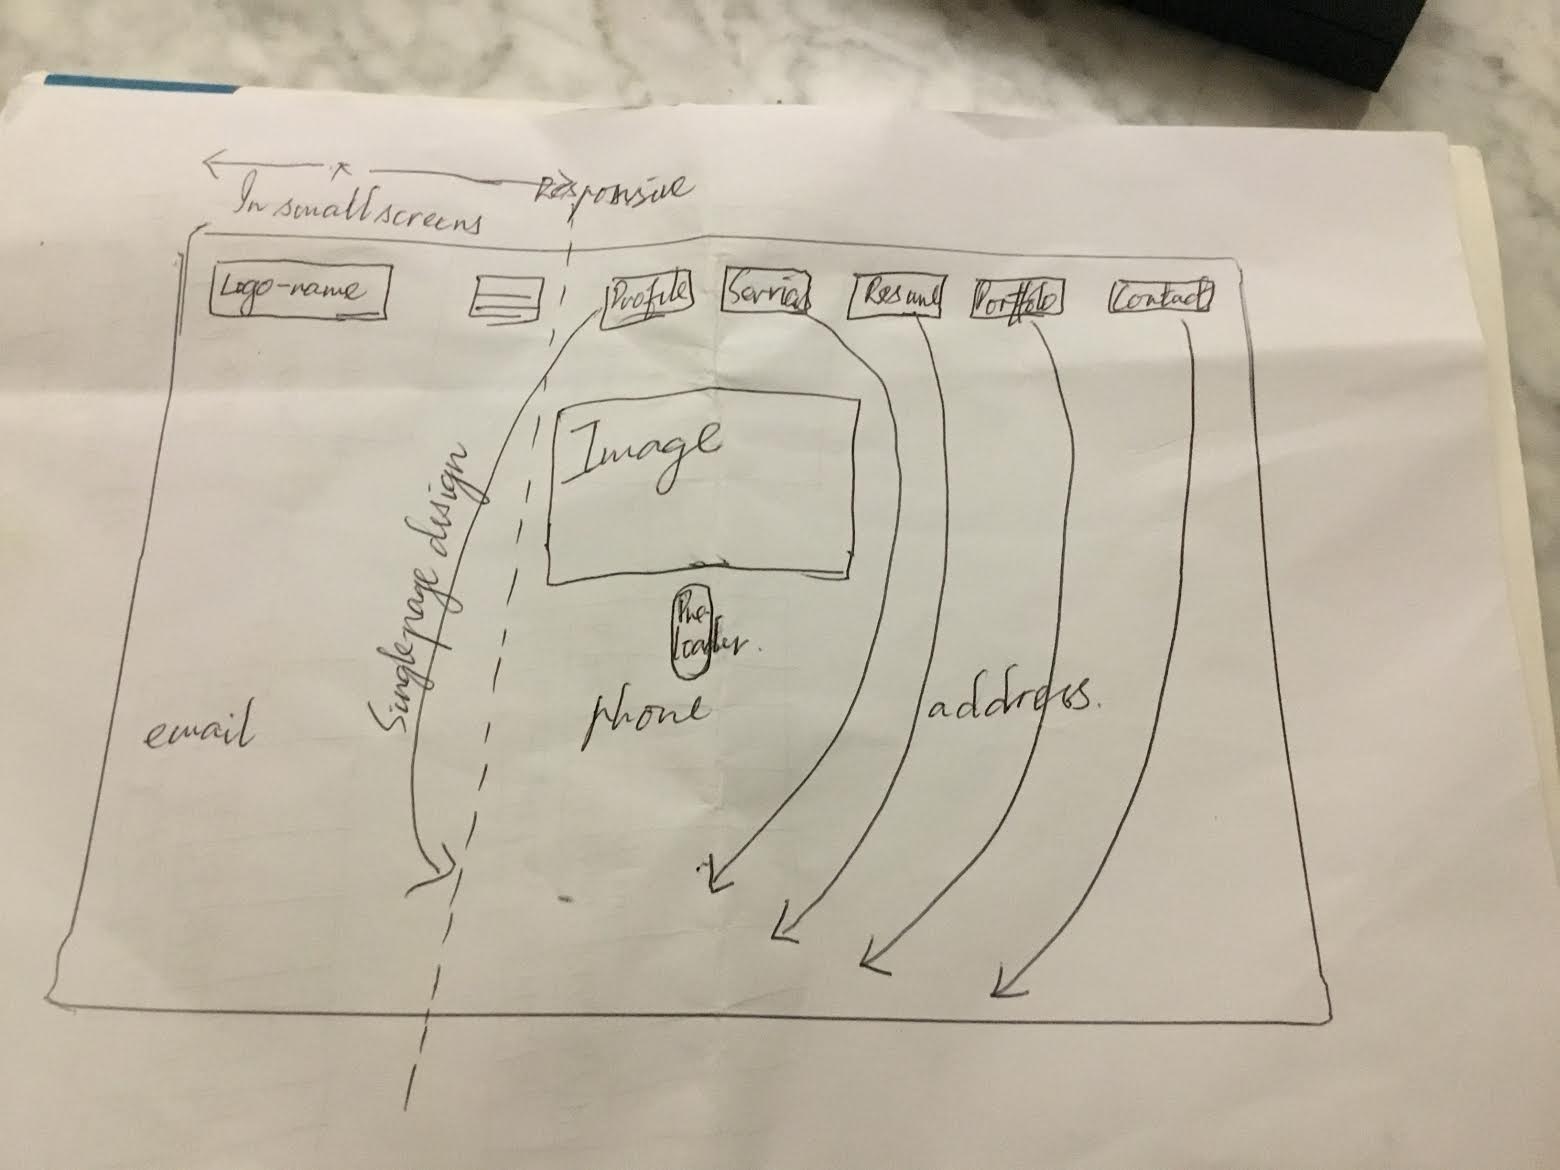 In small screens
Responsive
Logo-name
Profile
Service
Resume
Portfolio
Contact
Image
Single page disign
Pre-
loader.
email
phone
address.